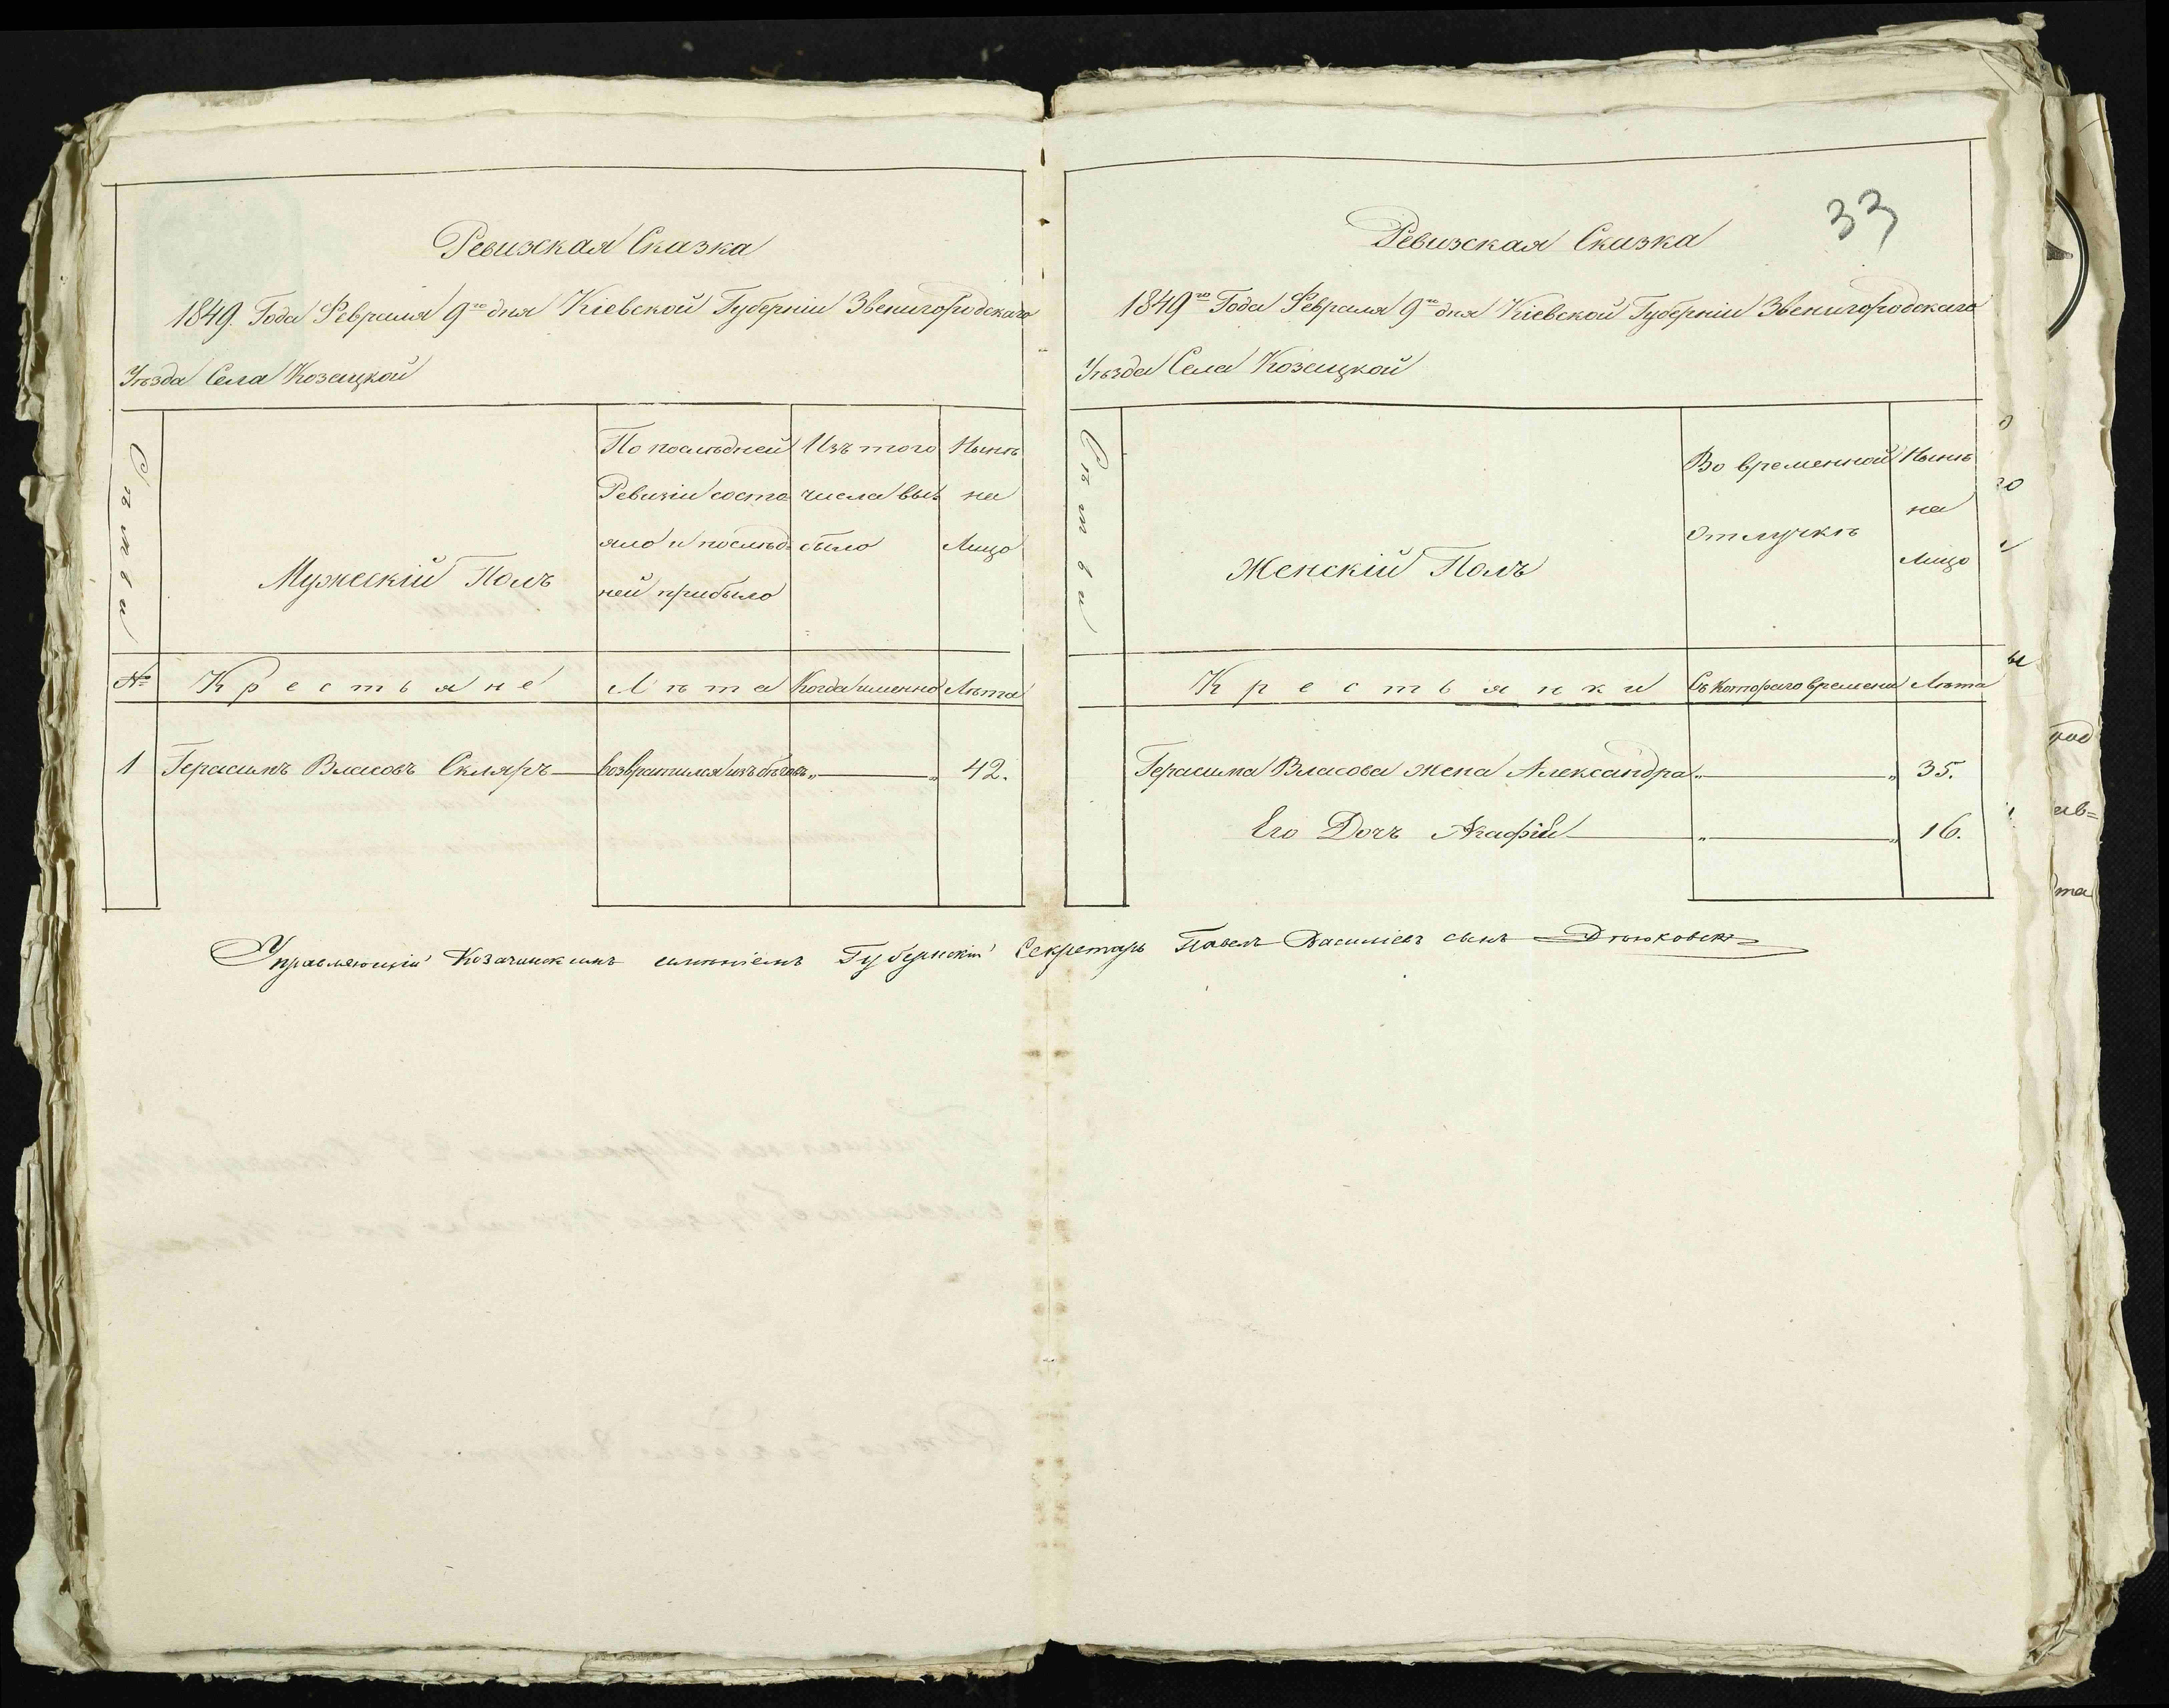 Ревизская Сказка
1849. Года Февраля 9го дня Кіевской Губерніи Звенигородскаго
Уѣзда Села Козацкой
Семьи
Мужескій Полъ
По послѣдней
Ревизіи состо
яло и послѣд
ней прибыло
Изъ того
числа вы
было
Нынѣ
на
Лицо
№ Крестьяне Лѣта Когда именно Лѣта
1 Герасимъ Власовъ Скляръ возвратился изъ бѣговъ „ „ 42.
33
Ревизская Сказка
1849го Года Февраля 9го дня Кіевской Губерніи Звенигородскаго
Уѣзда Села Козацкой
Семьи
Женскій Полъ
Во временной
отлучкѣ
Нынѣ
на
Лицо
Крестьянки Съ котораго времени Лѣта
Герасима Власова жена Александра „ „ 35.
Его Дочь Агафія „ „ 16.
Управляющій Козачинскимъ имѣніемъ Губернскій Секретарь Павелъ Василіевъ сынъ